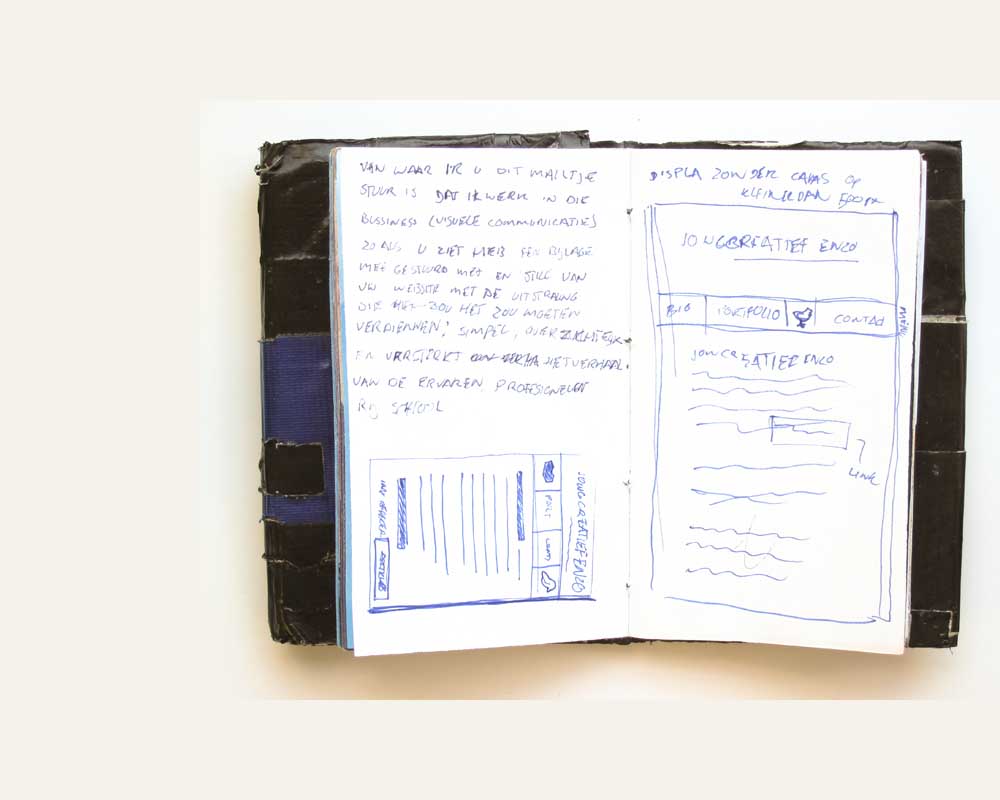 VAN WAAR IK U DIT MAILTJE
STUUR IS DAT IK WERK IN DIE
BUSSINESS (VISUELE COMMUNICATIE)
ZOALS U ZIET HEB EEN BIJLAGE
MEE GESTUURD MET EN STIJL VAN
UW WEBSITE MET DE UITSTRALING
DIE HET ZOU HET ZOU MOETEN
VERDIENNEN! SIMPEL, OVERZICHTELIJK
EN VERSTERKT HET VERHAAL.
VAN DE ERVAREN PROFESIGNELEN
BIJ
JONGCREATIEF ENZO
PORT
CONT
DISPLA ZONDER CANVAS OP
KLEINER DAN 500PX
JONGCREATIEF ENZO
BIO
PORTFOLIO
CONTACT
JONGCREATIEF ENZO
LINK